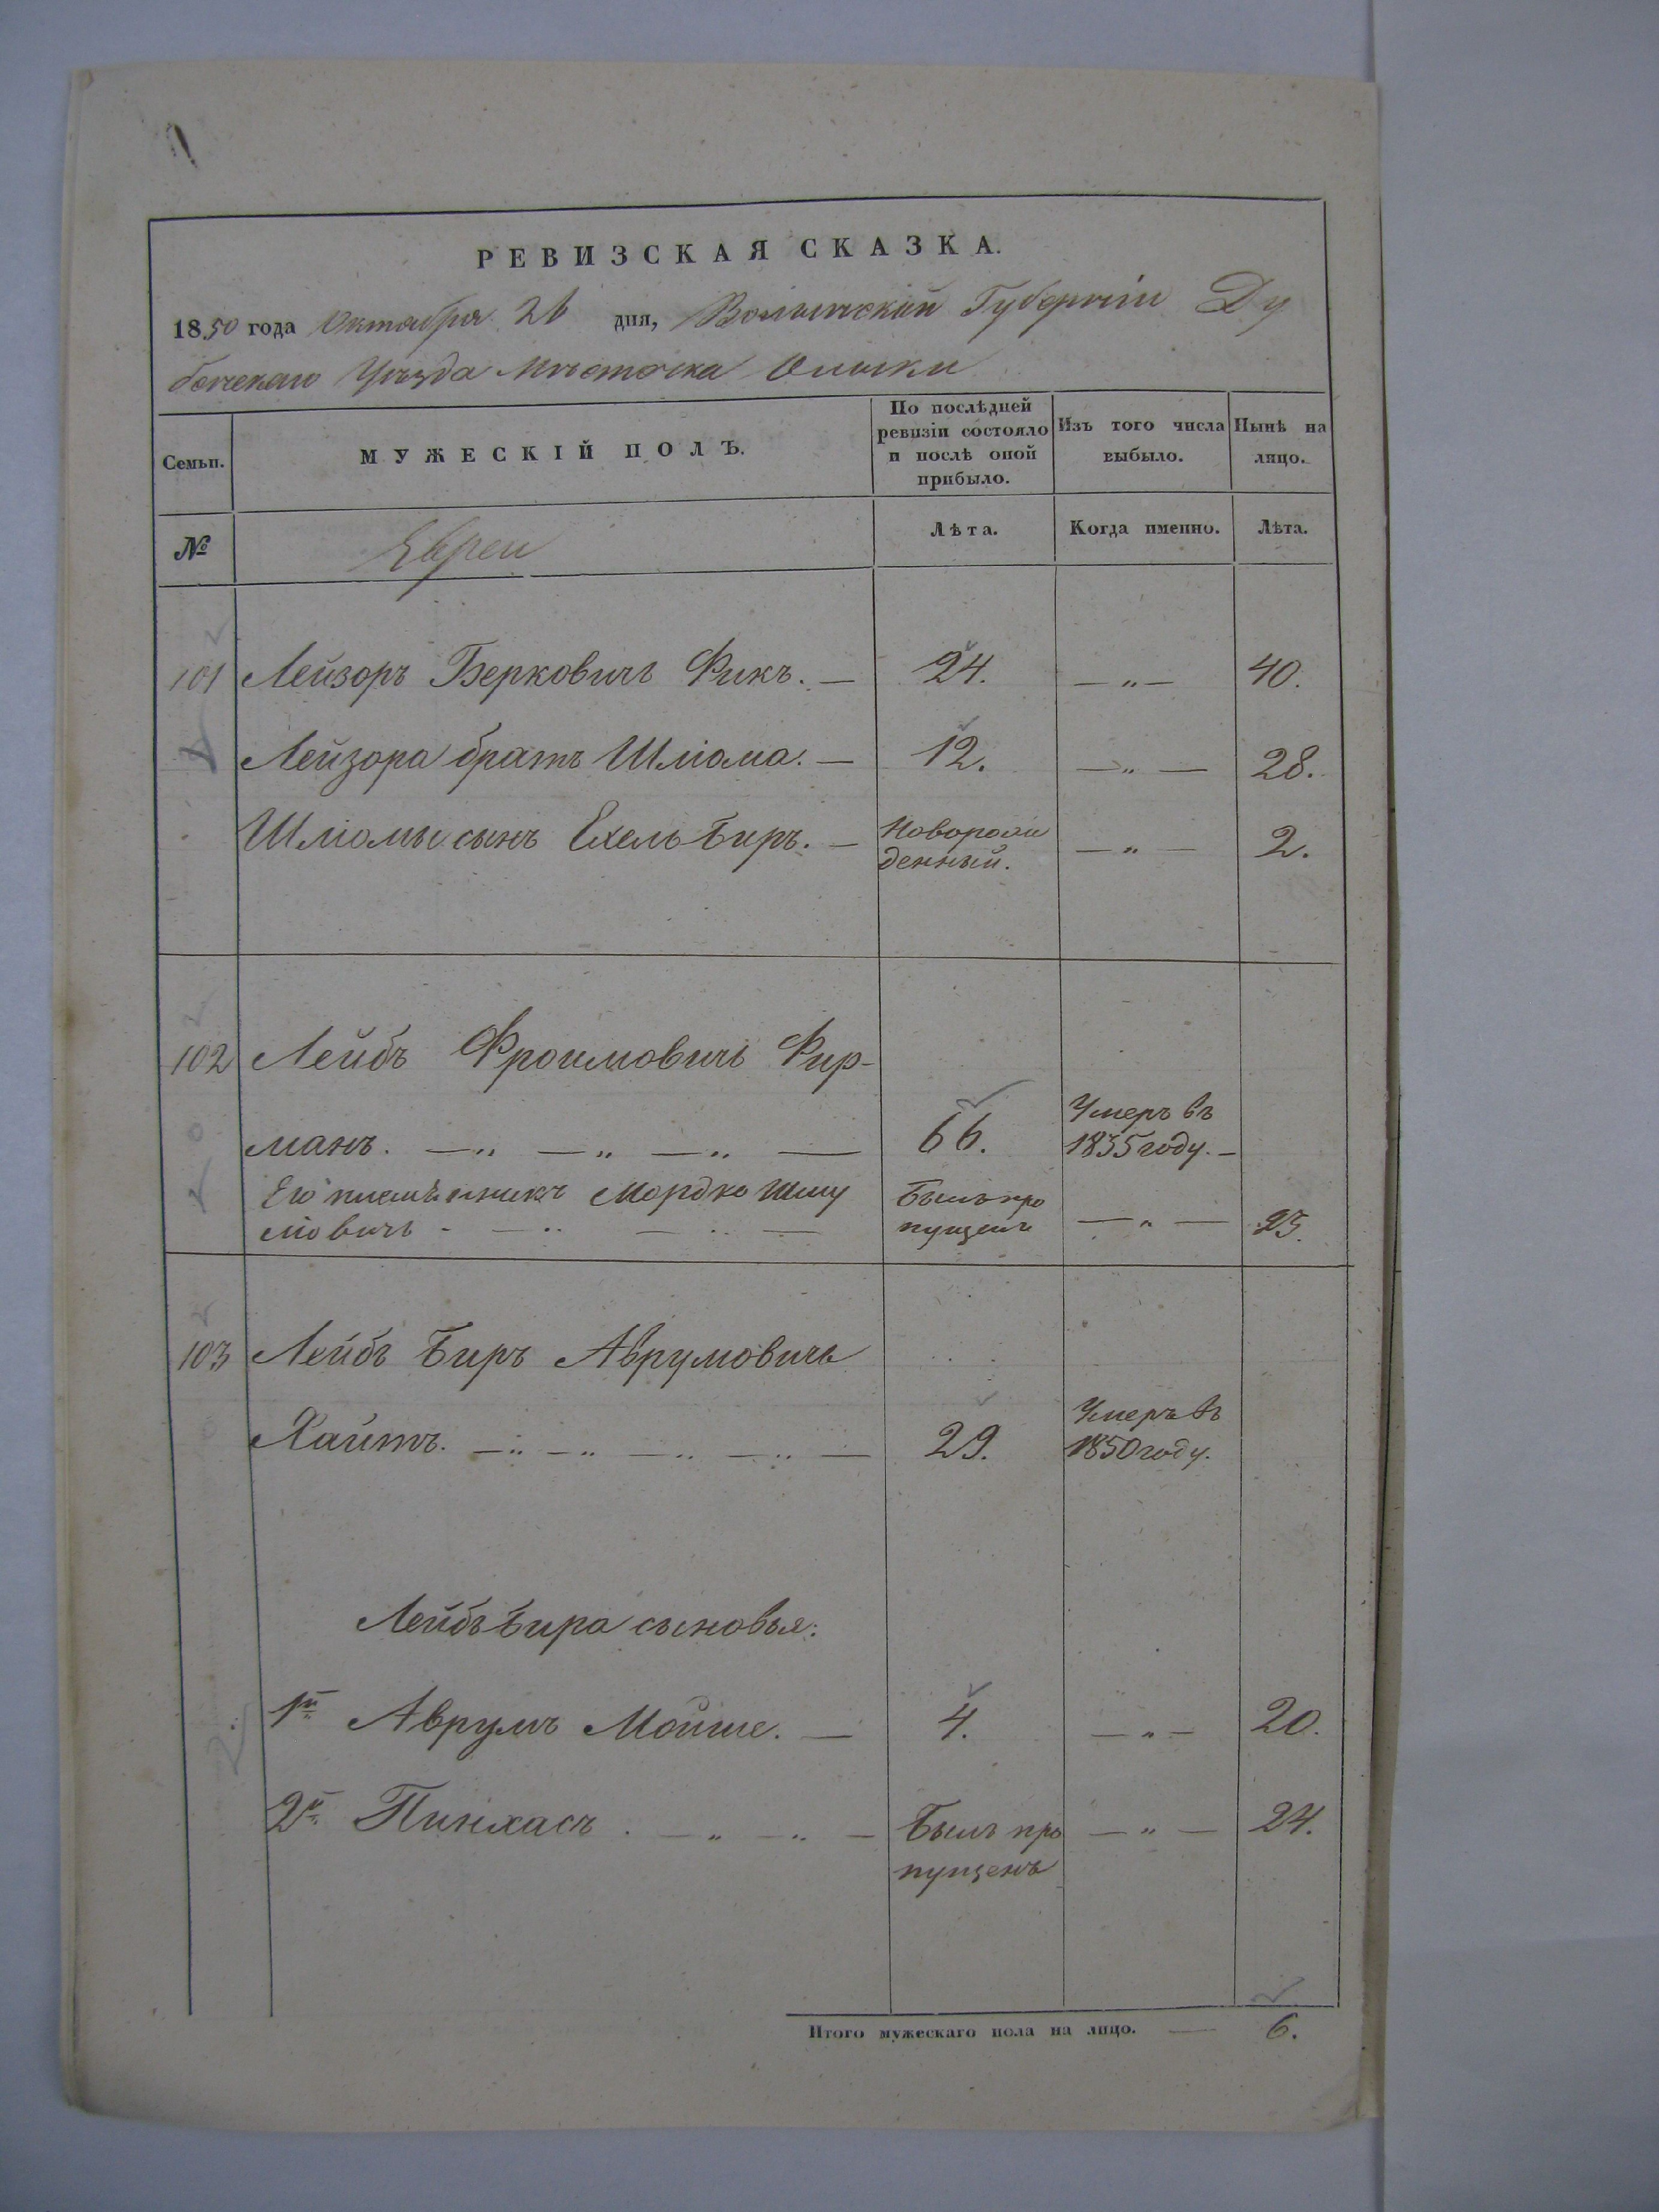 РЕВИЗСКАЯ СКАЗКА.
1850 года Октября 26 дня, Волынской Губернiи Ду
бенскаго Уѣзда Мѣстечка Олыки
Семьи.
МУЖЕСКІЙ ПОЛЪ.
По послѣдней ревизіи состояло и послѣ оной прибыло.
Изъ того числа выбыло.
Нынѣ на лицо.
№
Евреи
Лѣта.
Когда именно.
Лѣта.
101 Лейзоръ Берковичъ Фикъ. — 24. — „ — 40.
Лейзора братъ Шліома. — 12. — „ — 28.
Шліомы сынъ Ехель Биръ. — Новорож
денный. — „ — 2.
102 Лейбъ Фроимовичъ Фир-
манъ. — „ — „ — „ — 66. Умеръ въ
1835 году. —
Его племѣнникъ Мордко Шму
лiовичъ - — „ — „ — Былъ про
пущенъ — „ — 23.
103 Лейбъ Биръ Аврумовичъ
Хайтъ. — „ — „ — „ — „ — 29. Умеръ въ
1850 году.
Лейбъ Бира сыновья:
1й Аврумъ Мойше. — 4. — „ — 20.
2й Пинхасъ . — „ — „ — Былъ про
пущенъ — „ — 24.
Итого мужескаго пола на лицо. — 6.